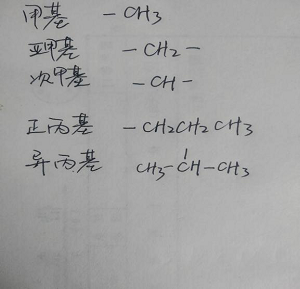 甲基 -CH3
亚甲基 -CH2-
次甲基 -CH-
正丙基 -CH2CH2CH3
异丙基 CH3-CH-CH3